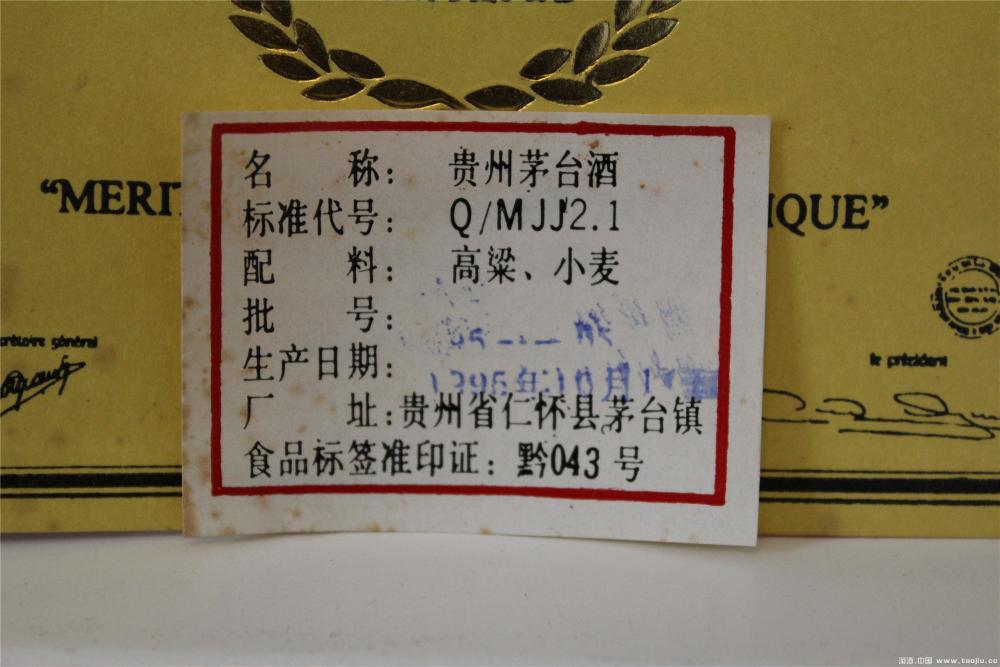 "MERIT
IQUE"
名 称: 贵州茅台酒
标准代号: Q/MJJ2.1
配 料: 高粱、小麦
批 号:
生产日期: 1995年10月1
厂 址:贵州省仁怀县茅台镇
食品标签准印证: 黔043号
secrétaire général
le président
淘酒.中国 www.taojiu.cc